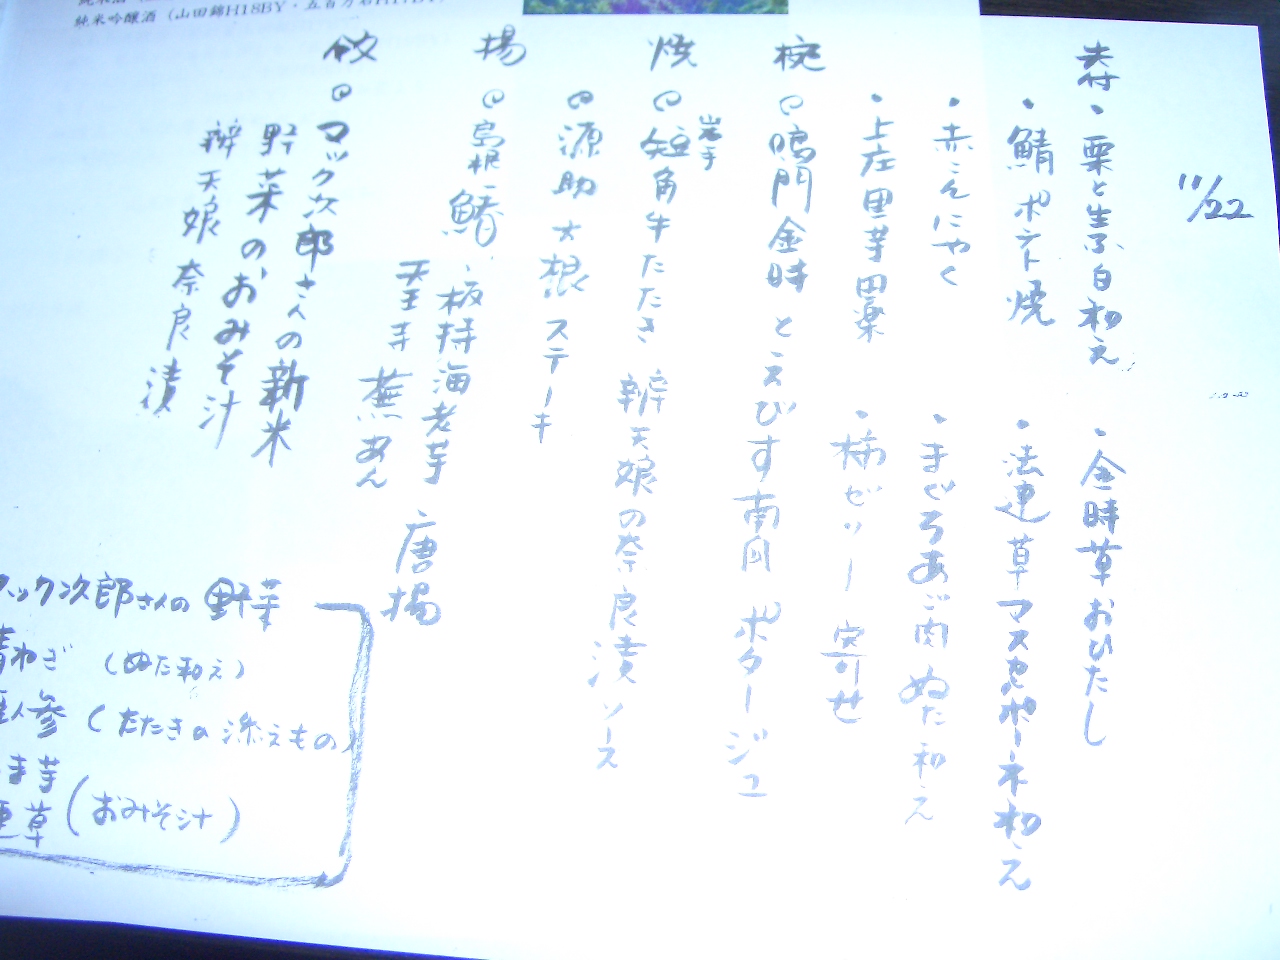 純米吟醸酒（山田錦H18BY・五百万石H17BY）
11/22
先付・栗と生ふ白和え
・金時草おひたし
・鯖ポテト焼
・法連草マスカルポーネ和え
・赤こんにゃく
・まぐろあご肉ぬた和え
・上庄里芋田楽
・柿ゼリー寄せ
椀 鳴門金時とえびす南瓜ポタージュ
焼 岩手
短角牛たたき 辨天娘の奈良漬ソース
源助大根ステーキ
揚 島根鰆、板持海老芋 唐揚
天王寺蕪あん
飲 マック次郎さんの新米
野菜のおみそ汁
辨天娘奈良漬
マック次郎さんの野菜
青ねぎ（ぬた和え）
人参（たたきの添えもの）
芋
連草（おみそ汁）